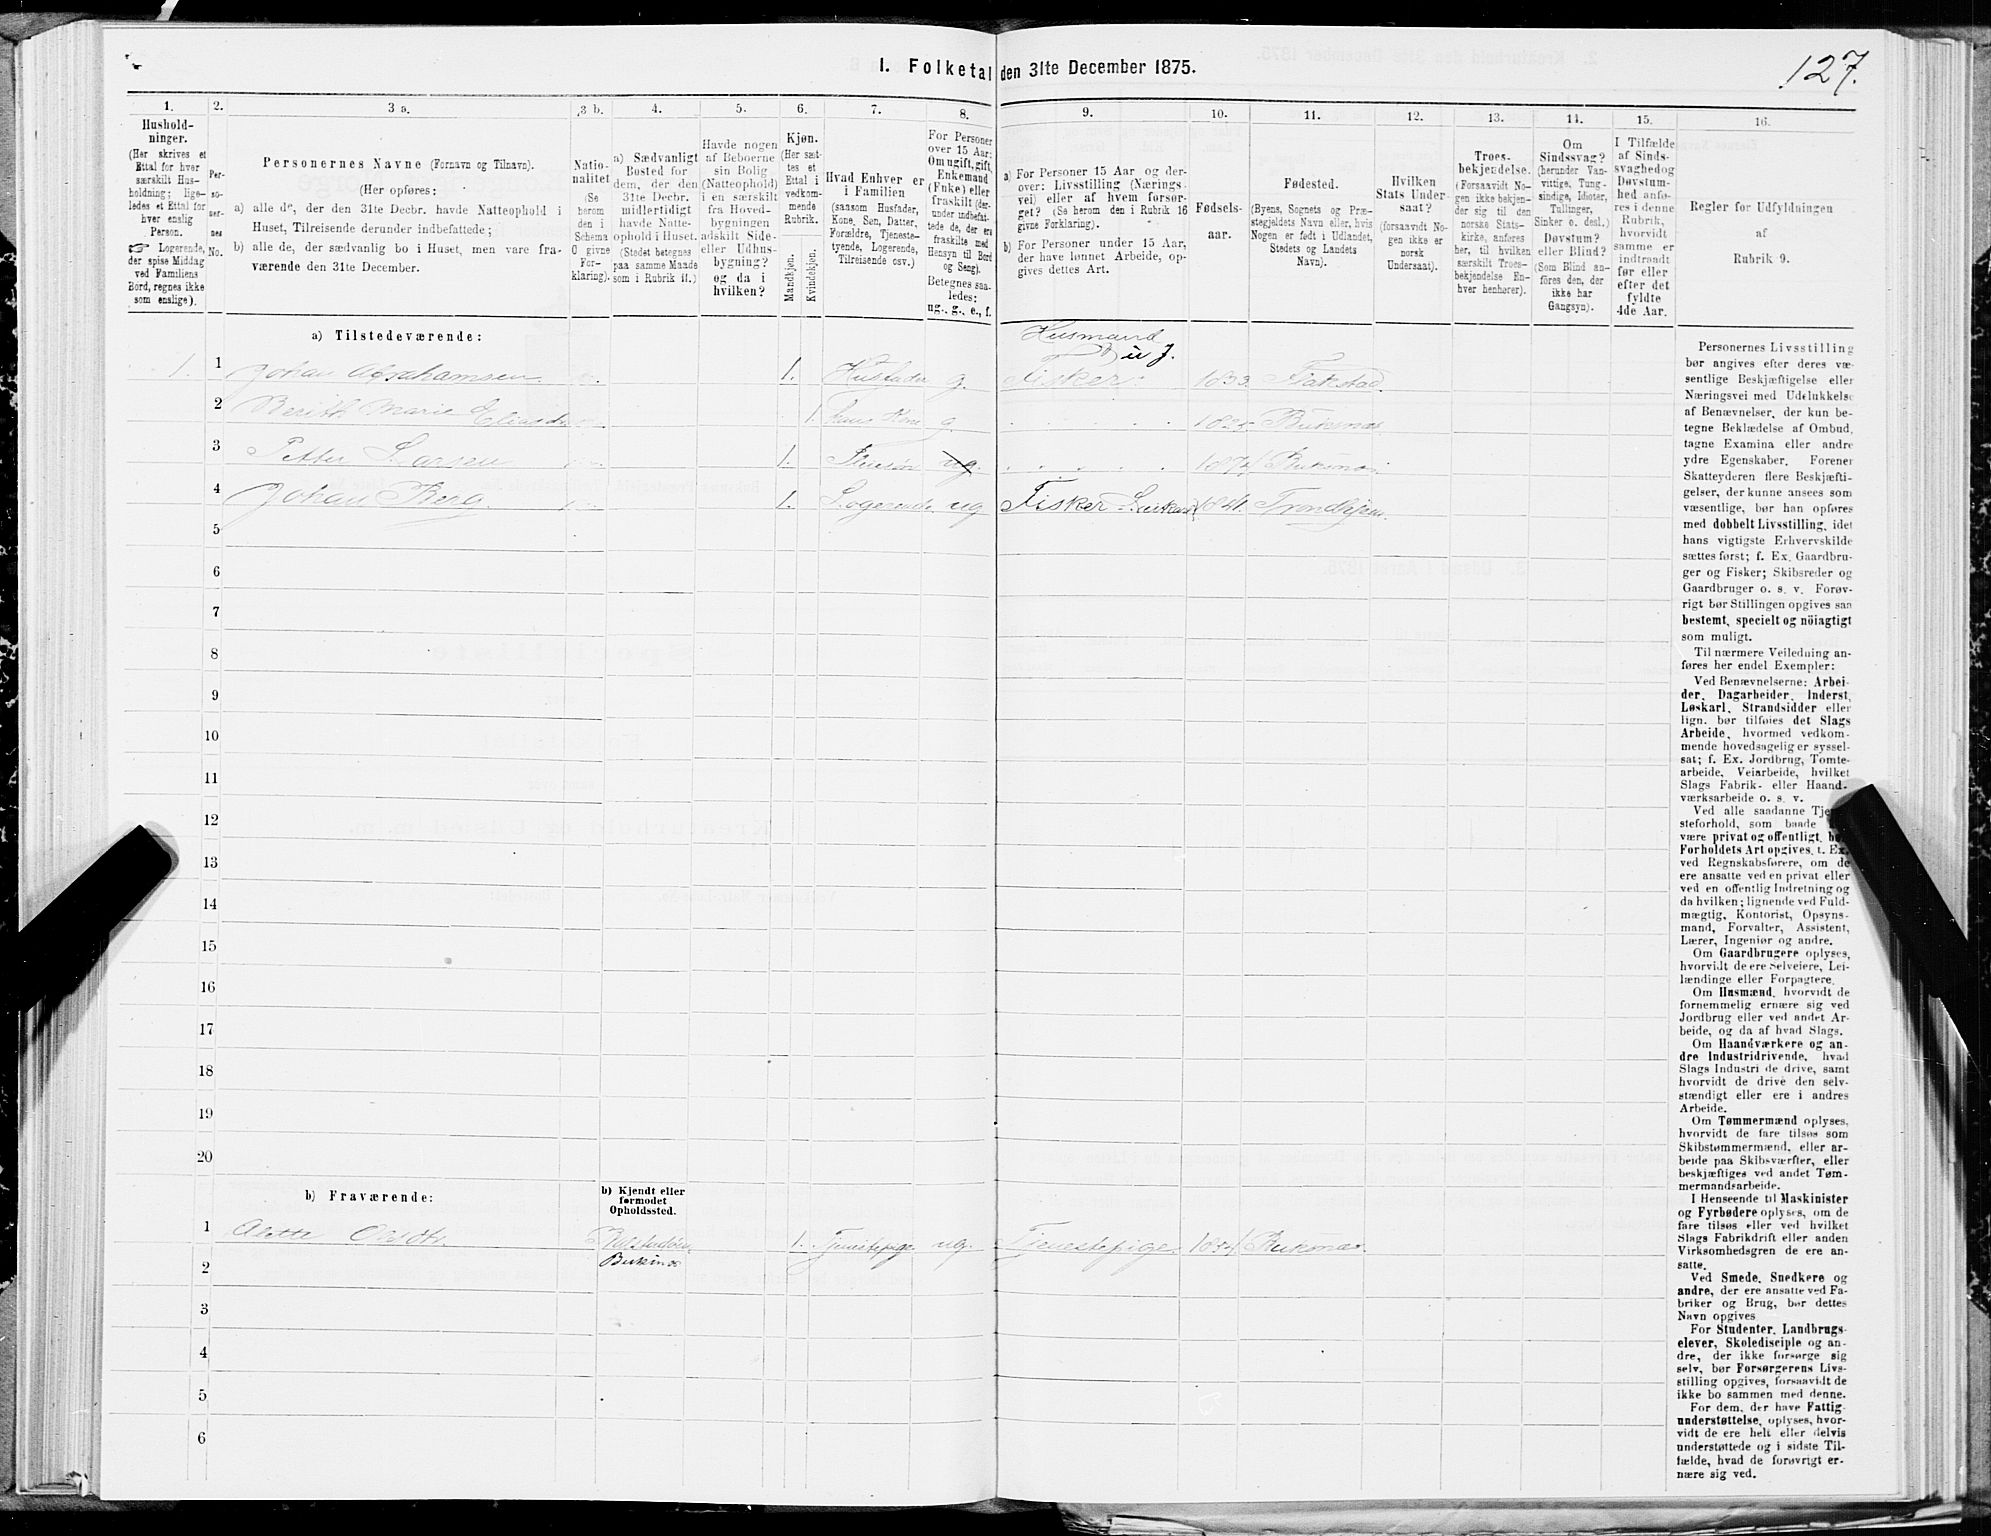 127.
1. Folketal den 31te December 1875.
1. 2. 3 a. 3 b. 4. 5. 6. 7. 8. 9. 10. 11. 12. 13. 14. 15. 16.
Hushold-
ninger.
(Her skrives et
Ettal for hver
særskilt Hus-
holdning; lige-
ledes et Ettal for
hver enslig
Person.
☞ Logerende,
der spise Middag
ved Familiens
Bord, regnes ikke
som enslige).
Per-
so-
ner-
nes
No.
Personernes Navne (Fornavn og Tilnavn).
(Her opføres:
a) alle de, der den 31te Decbr. havde Natteophold i
Huset, Tilreisende derunder indbefattede;
b) alle de, der sædvanlig bo i Huset, men vare fra-
værende den 31te December.
Natio-
nalitet
(Se
herom
den i
Schema
O givne
For-
klaring).
a) Sædvanligt
Bosted for
dem, der den
31te Decbr.
midlertidigt
havde Natte-
ophold i Huset.
(Stedet betegnes
paa samme Maade
som i Rubrik 11.)
Havde nogen
af Beboerne
sin Bolig
(Natteophold)
i en særskilt
fra Hoved-
bygningen
adskilt Side-
eller Udhus-
bygning?
og da i
hvilken?
Kjøn.
(Her sæt-
tes et
Ettal i
vedkom-
mende
Rubrik.
Mandkjøn.
Kvindekjøn.
Hvad Enhver er
i Familien
(saasom Husfader,
Kone, Søn, Datter,
Forældre, Tjeneste-
tyende, Logerende,
Tilreisende osv.)
For Personer
over 15 Aar:
Om ugift, gift,
Enkemand
(Enke) eller
fraskilt (der-
under indbefat-
tede de, der ere
fraskilte med
Hensyn til Bord
og Seng).
Betegnes saa-
ledes:
ug., g., e., f.
a) For Personer 15 Aar og der-
over: Livsstilling (Nærings-
vei) eller af hvem forsør-
get? (Se herom den i Rubrik 16
givne Forklaring).
b) For Personer under 15 Aar,
der have lønnet Arbeide, op-
gives dettes Art.
Fødsels-
aar.
Fødested.
(Byens, Sognets og Præ-
stegjeldets Navn eller, hvis
Nogen er født i Udlandet,
Stedets og Landets
Navn).
Hvilken
Stats Under-
saat?
(forsaavidt No-
gen ikke er
norsk
Undersaat).
Troes-
bekjendelse.
(Forsaavidt No-
gen ikke bekjen-
der sig til den
norske Stats-
kirke, anføres
her, til hvilken
særskilt Troes-
bekjendelse En-
hver henhører).
Om
Sindssvag?
(herunder Van-
vittige, Tung-
sindige, Idioter,
Tullinger,
Sinker o. desl.)
Døvstum?
eller Blind?
(Som Blind an-
føres den, der
ikke har
Gangsyn).
I Tilfælde
af Sinds-
svaghedog
Døvstum-
hed anfø-
res i denne
Rubrik,
hvorvidt
samme er
indtraadt
før eller
efter det
fyldte
4de Aar.
Regler for Udfyldningen
af
Rubrik 9.
a) Tilstedeværende:
Husmand
u J.
1. 1 Johan Abrahamsen 1. Husfader g. Fisker. 1833. Flakstad
2 Berith Marie 1 hans Kone g. Buksnæs
3 Petter Larsen 1. ug. 1874 Buksnæs
4 Johan Berg 1. Logerende ug Fisker 1841. Trondhjem
5
6
7
8
9
10
11
12
13
14
15
16
17
18
19
20
b) Fraværende:
b) Kjendt eller
formodet
Opholdssted.
1 1. Tjenestepige ug. Tjenestepige 1854 Buksnæs
2 Buksnæs
3
4
5
6
Personernes Livsstilling
bør angives efter deres væ-
sentlige Beskjæftigelse eller
Næringsvei med Udelukkelse
af Benævnelser, der kun be-
tegne Beklædelse af Ombud,
tagne Examina eller andre
ydre Egenskaber. Forener
Skatteyderen flere Beskjæfti-
gelser, der kunne ansees som
væsentlige, bør han opføres
med dobbelt Livsstilling, idet
hans vigtigste Erhvervskilde
sættes først; f. Ex. Gaardbru-
ger og Fisker; Skibsreder og
Gaardbruger o. s. v. Forøv-
rigt bør Stillingen opgives saa
bestemt, specielt og nöiagtigt
som muligt.
Til nærmere Veiledning an-
føres her endel Exempler:
Ved Benævnelserne: Arbei-
der, Dagarbeider, Inderst,
Løskarl, Strandsidder eller
lign. bør tilføies det Slags
Arbeide, hvormed vedkom-
mende hovedsagelig er syssel-
sat; f. Ex. Jordbrug, Tomte-
arbeide, Veiarbeide, hvilket
Slags Fabrik- eller Haand-
værksarbeide o. s. v.
Ved alle saadanne Tje
steforhold, som baade
være privat og offentligt, bør
Forholdets Art opgives, t. Ex.
ved Regnskabsførere, om de
ere ansatte ved en privat eller
ved en offentlig Indretning og
da hvilken; lignende ved Fuld-
mægtig, Kontorist, Opsyns-
mand, Forvalter, Assistent,
Lærer, Ingeniør og andre.
Om Gaardbrugere oplyses,
hvorvidt de ere Selveiere, Lei-
lændinge eller Forpagtere.
Om Husmænd, hvorvidt de
fornemmelig ernære sig ved
Jordbrug eller ved andet Ar-
beide, og da af hvad Slags.
Om Haandværkere og an-
dre Industridrivende, hvad
Slags Industri de drive, samt
hvorvidt de drive den selv-
stændigt eller ere i andres
Arbeide.
Om Tømmermænd oplyses,
hvorvidt de fare tilsøs som
Skibstømmermænd, eller ar-
beide paa Skibsværfter, eller
beskjæftiges ved andet Tøm-
mermandsarbeide.
I Henseende til Maskinister
og Fyrbødere oplyses, om de
fare tilsøs eller ved hvilket
Slags Fabrikdrift eller anden
Virksomhedsgren de ere an-
satte.
Ved Smede, Snedkere og
andre, der ere ansatte ved Fa-
briker og Brug, bør dettes
Navn opgives
For Studenter, Landbrugs-
elever, Skoledisciple og an-
dre, der ikke forsørge sig
selv, bør Forsørgerens Livs-
stilling opgives, forsaavidt de
ikke bo sammen med denne.
For dem, der have Fattig-
understøttelse, oplyses, hvor-
vidt de ere helt eller delvis
understøttede og i sidste Til-
fælde, hvad de forøvrigt er-
nære sig ved.